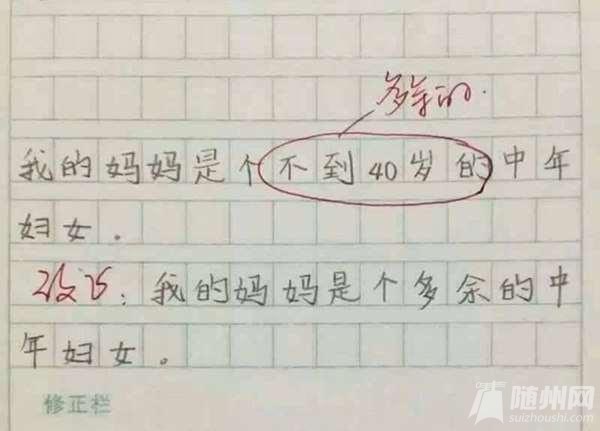 多余的.
我的妈妈是个不到40岁的中年
妇女。
改正：我的妈妈是个多余的中
年妇女。
修正栏
随州网
suizhoushi.com